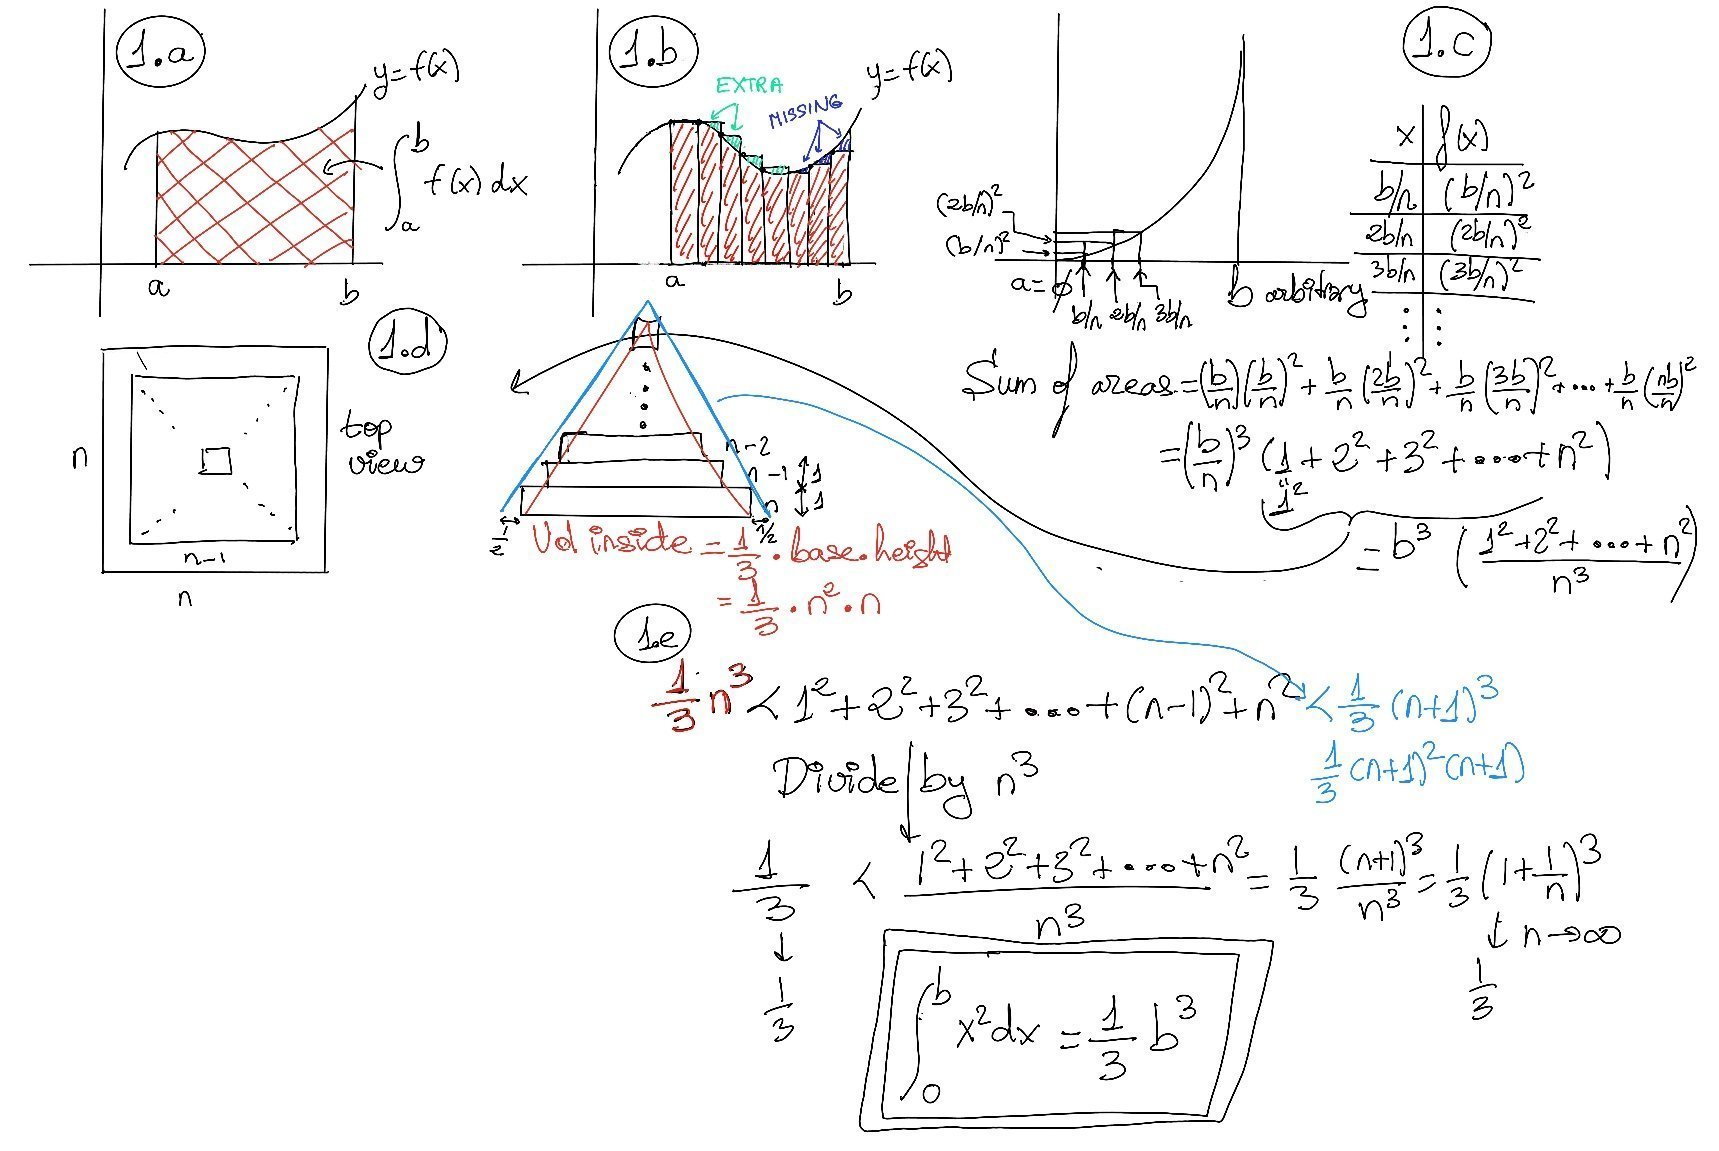 1.a
y=f(x)
∫_a^b f(x) dx
a b
1.b
EXTRA
MISSING
y=f(x)
a b
1.c
(2b/n)²
(b/n)²
a=∅
b/n 2b/n 3b/n
b arbitrary
x f(x)
b/n (b/n)²
2b/n (2b/n)²
3b/n (3b/n)²
⋮ ⋮
Sum of areas = (b/n)(b/n)² + b/n (2b/n)² + b/n (3b/n)² + ... + b/n (nb/n)²
= (b/n)³ (1 + 2² + 3² + ... + n²)
1²
= b³ ((1²+2²+ ... + n²)/n³)
1.d
n
n-1
n
top
view
n-2
n-1 1
n 1
1/2 1/2
Vol inside = 1/3 · base · height
= 1/3 · n² · n
1.e
1/3 n³ < 1² + 2² + 3² + ... + (n-1)² + n² < 1/3 (n+1)³
1/3 (n+1)² (n+1)
Divide by n³
1/3 < (1² + 2² + 3² + ... + n²)/n³ = 1/3 (n+1)³/n³ = 1/3 (1 + 1/n)³
↓ ↓ n→∞
1/3 1/3
∫_0^b x² dx = 1/3 b³